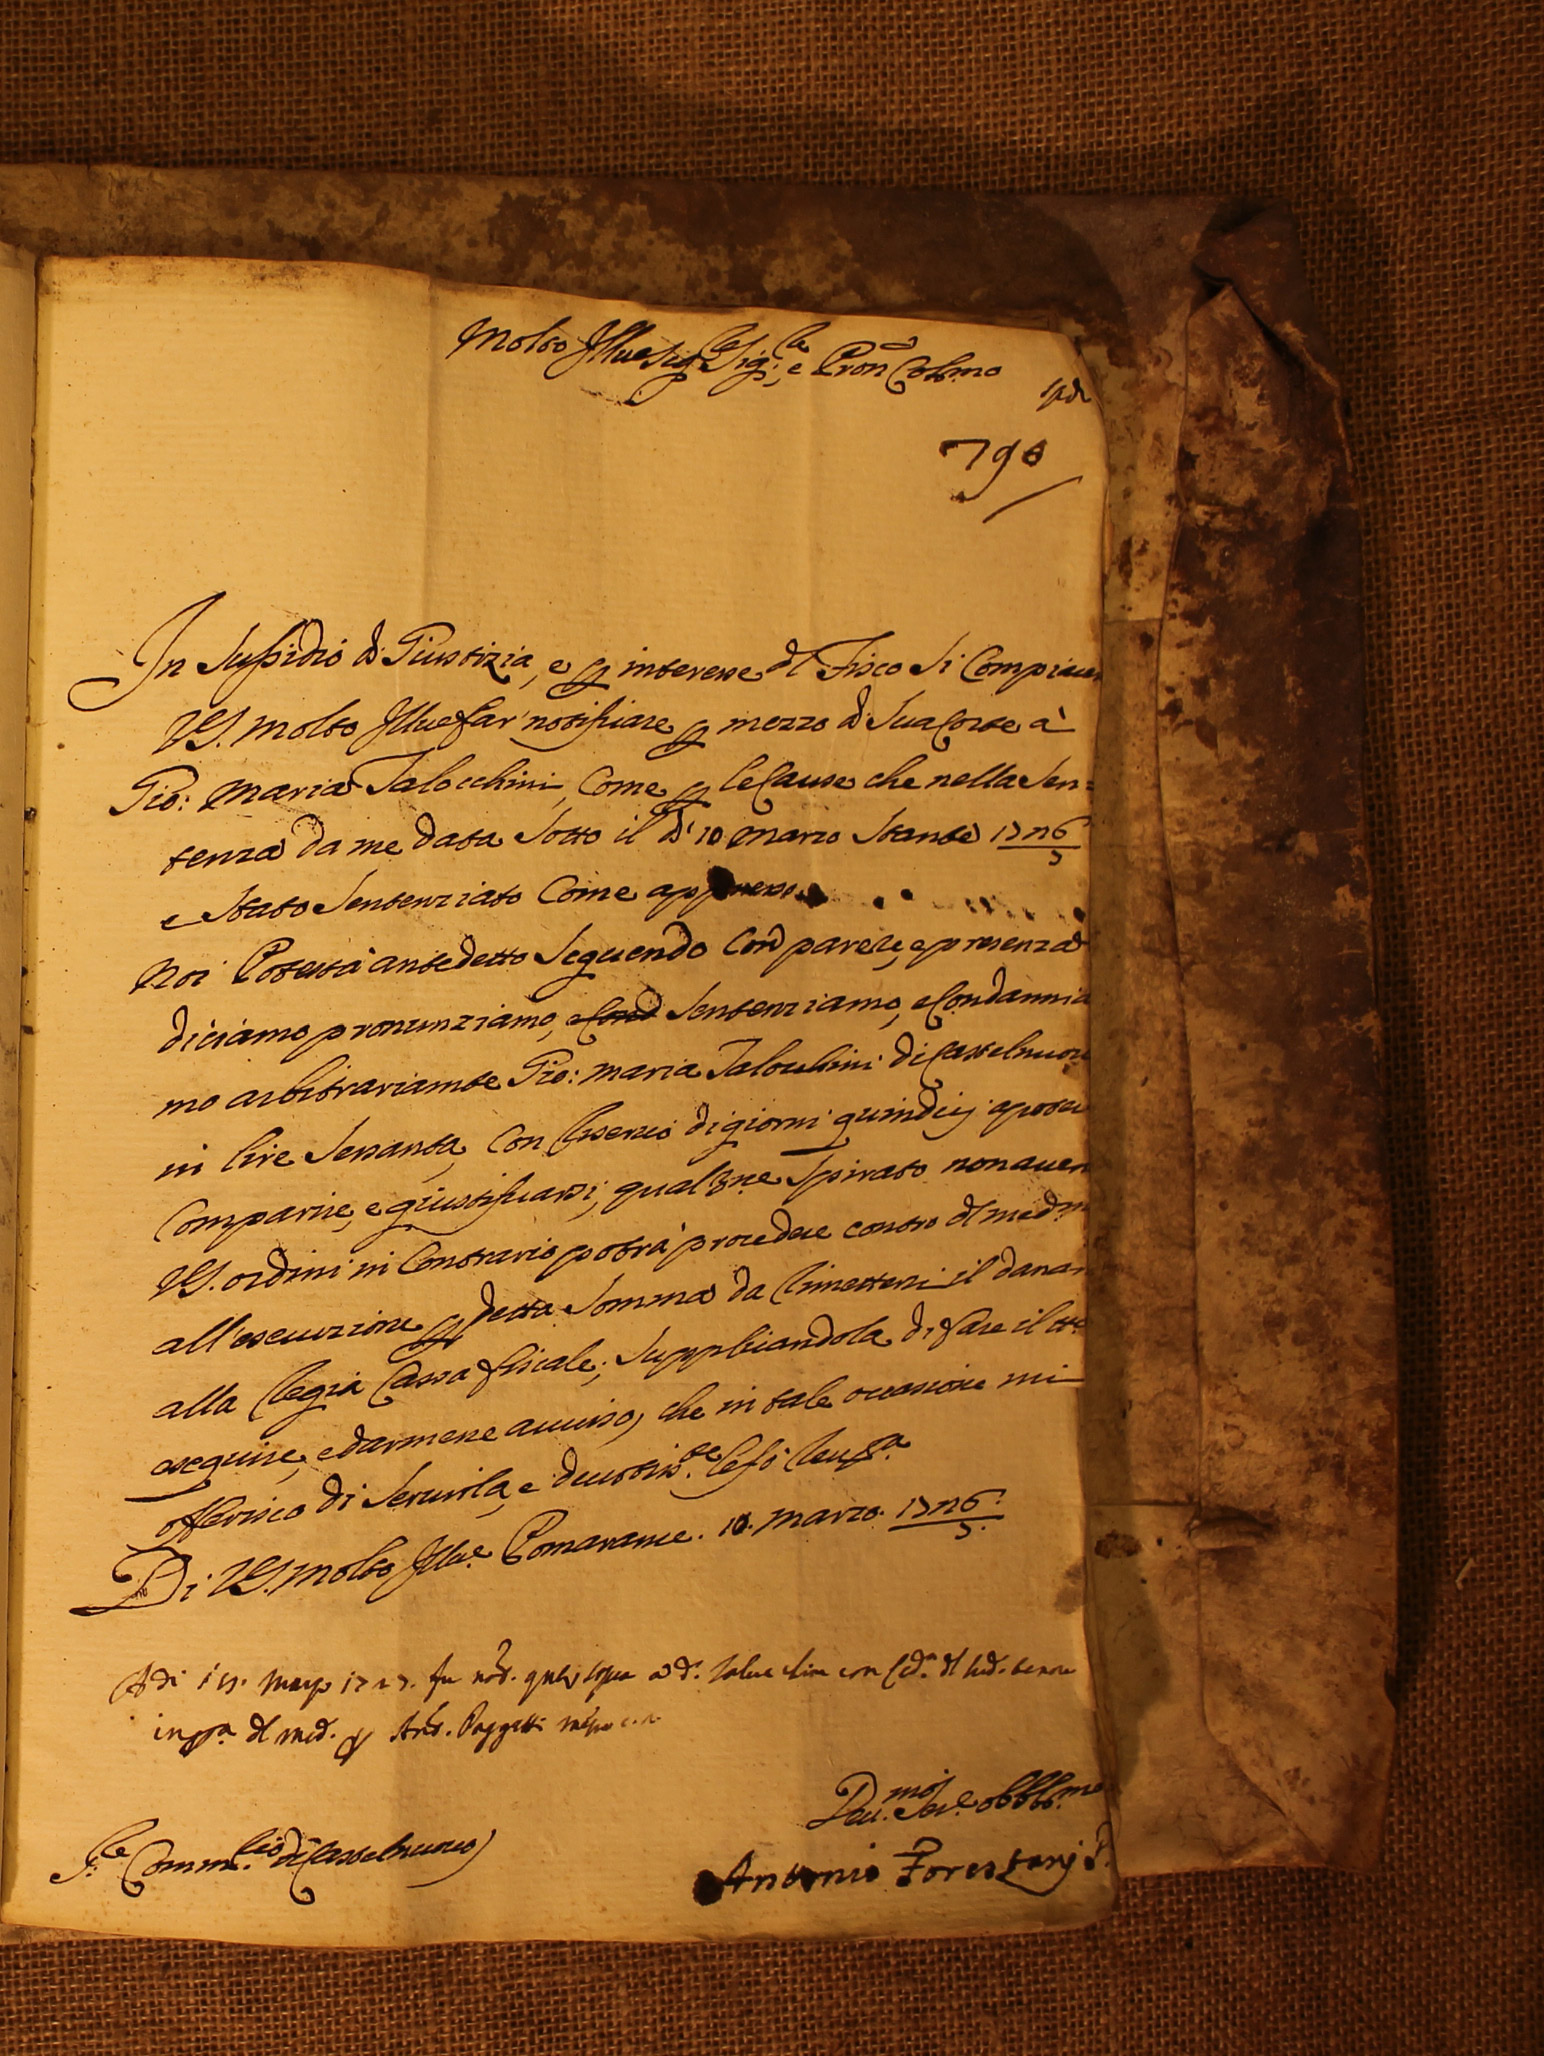 Molto Jllue Sig.le Sig.le, e Pron Colmo
790
In Sussidio di Giustizia, e p interesse dl Fisco Si Compiacer
VS. Molto Jllue far' notificare p mezzo di Sua Corte à
Gio: Maria Talocchini, Come p le Cause che nella Sen=
tenza da me data Sotto il dì 10 Marzo Stante 1726
e Stato Sentenziato Come appresso
Noi Potestà antedetto Seguendo Con parere, e presenza
diciamo pronunziamo, e Cond Sentenziamo, e Condannia
mo arbitrariamte Gio: Maria Talocchini di Castelnuovo
in lire Sessanta, Con Riservo di giorni quindicj a poter
Comparire, e giustificarsi, qual Spirato non aven
VS. ordini in Contrario potrà procedere contro dl med.m
all'esecuzione p detta Somma da Rimettersi il danar
alla Regia Cassa fiscale; Supplicandola di fare il tt.o
eseguire, e darmene avviso, che in tale occasione mi
offerisco di Servirla, e devotis.te le fò Reu.a
Di VS. Molto Jllu.e Pomarance. 10. Marzo. 1726.
A di 15. Marzo 1727. fu not. copia a d.o con dl
in pp.a dl med. p Ant. Paggetti
Deu.mo Ser.e obbl.mo
S.le Comm.rio di Castelnuovo
Antonio Forestanj P.